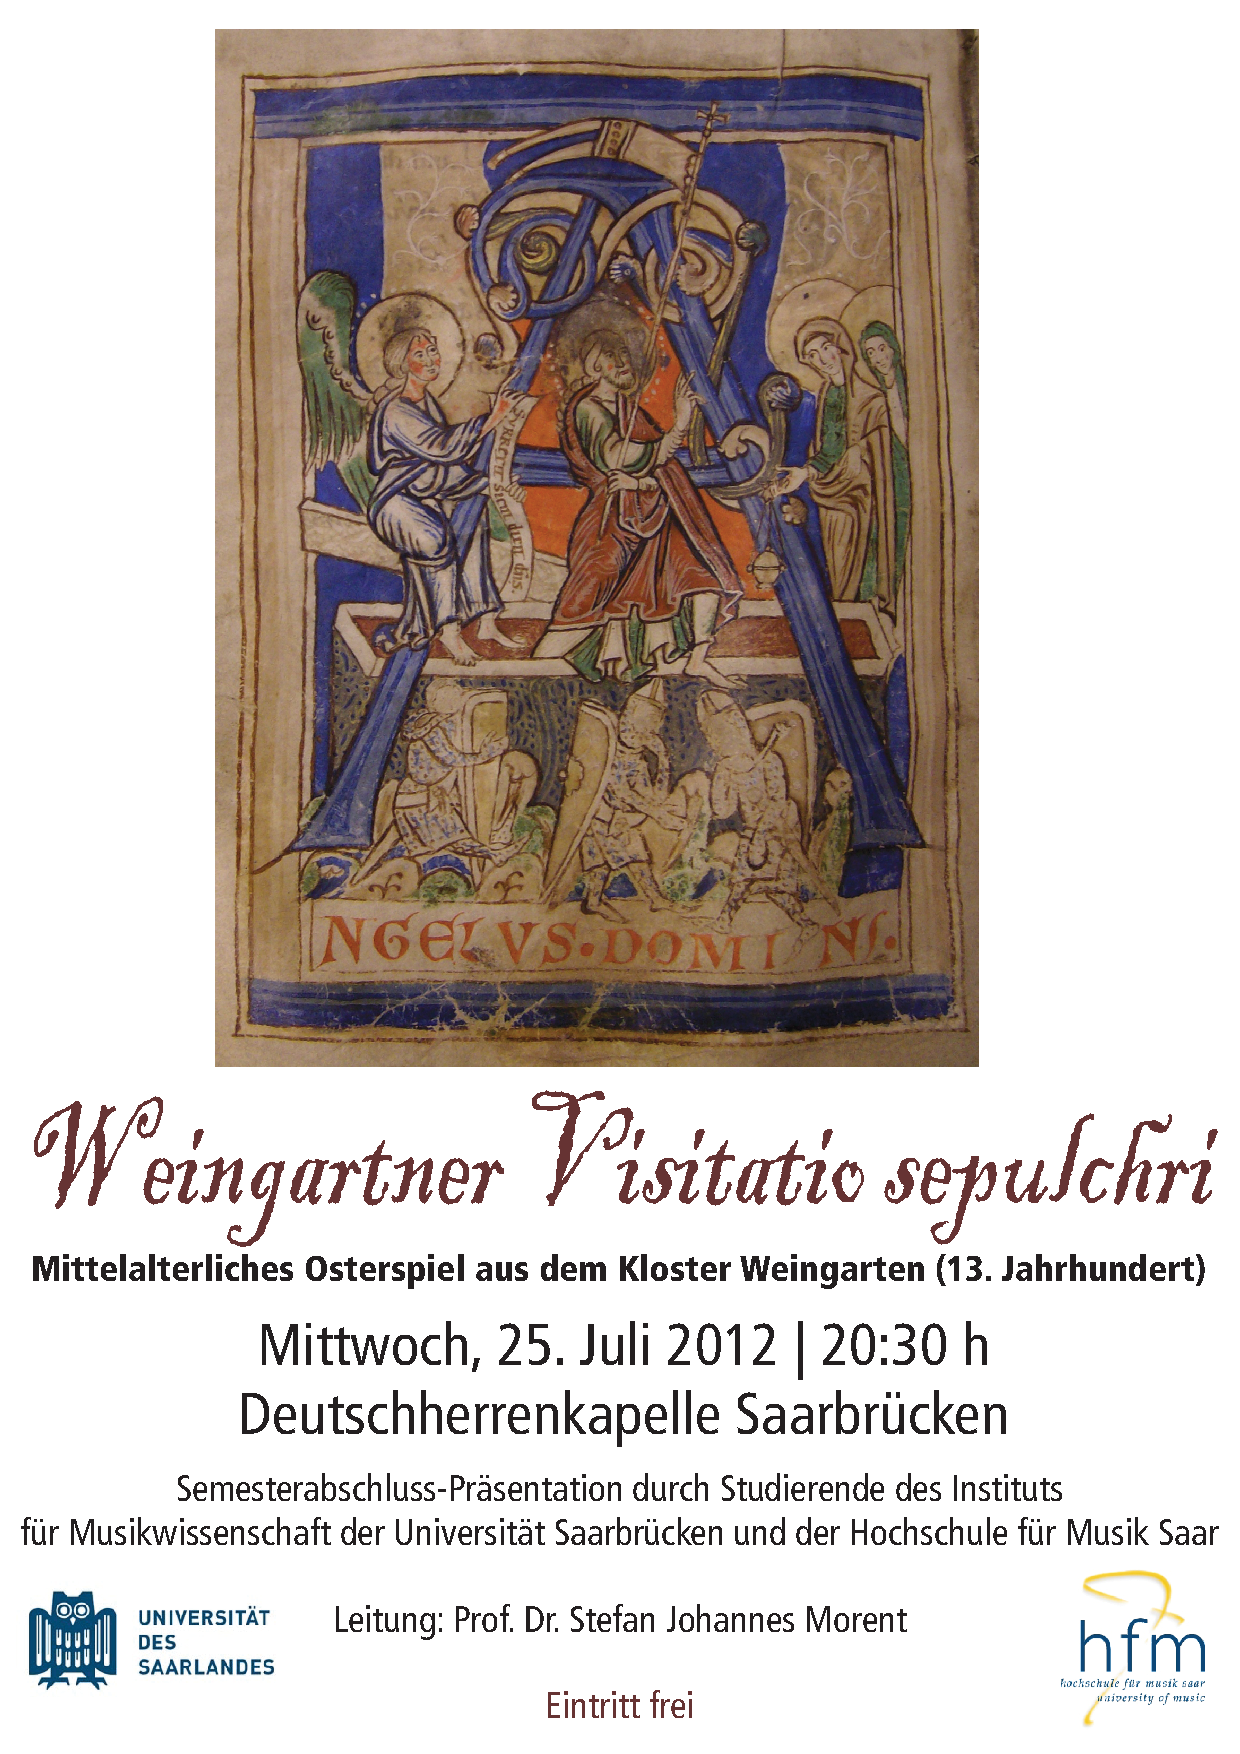 SURREXIT SICUT DIXIT DNS.
NGELVS·DOMINI·
Weingartner Visitatio sepulchri
Mittelalterliches Osterspiel aus dem Kloster Weingarten (13. Jahrhundert)
Mittwoch, 25. Juli 2012 | 20:30 h
Deutschherrenkapelle Saarbrücken
Semesterabschluss-Präsentation durch Studierende des Instituts
für Musikwissenschaft der Universität Saarbrücken und der Hochschule für Musik Saar
UNIVERSITÄT
DES
SAARLANDES
Leitung: Prof. Dr. Stefan Johannes Morent
hfm
hochschule für musik saar
university of music
Eintritt frei